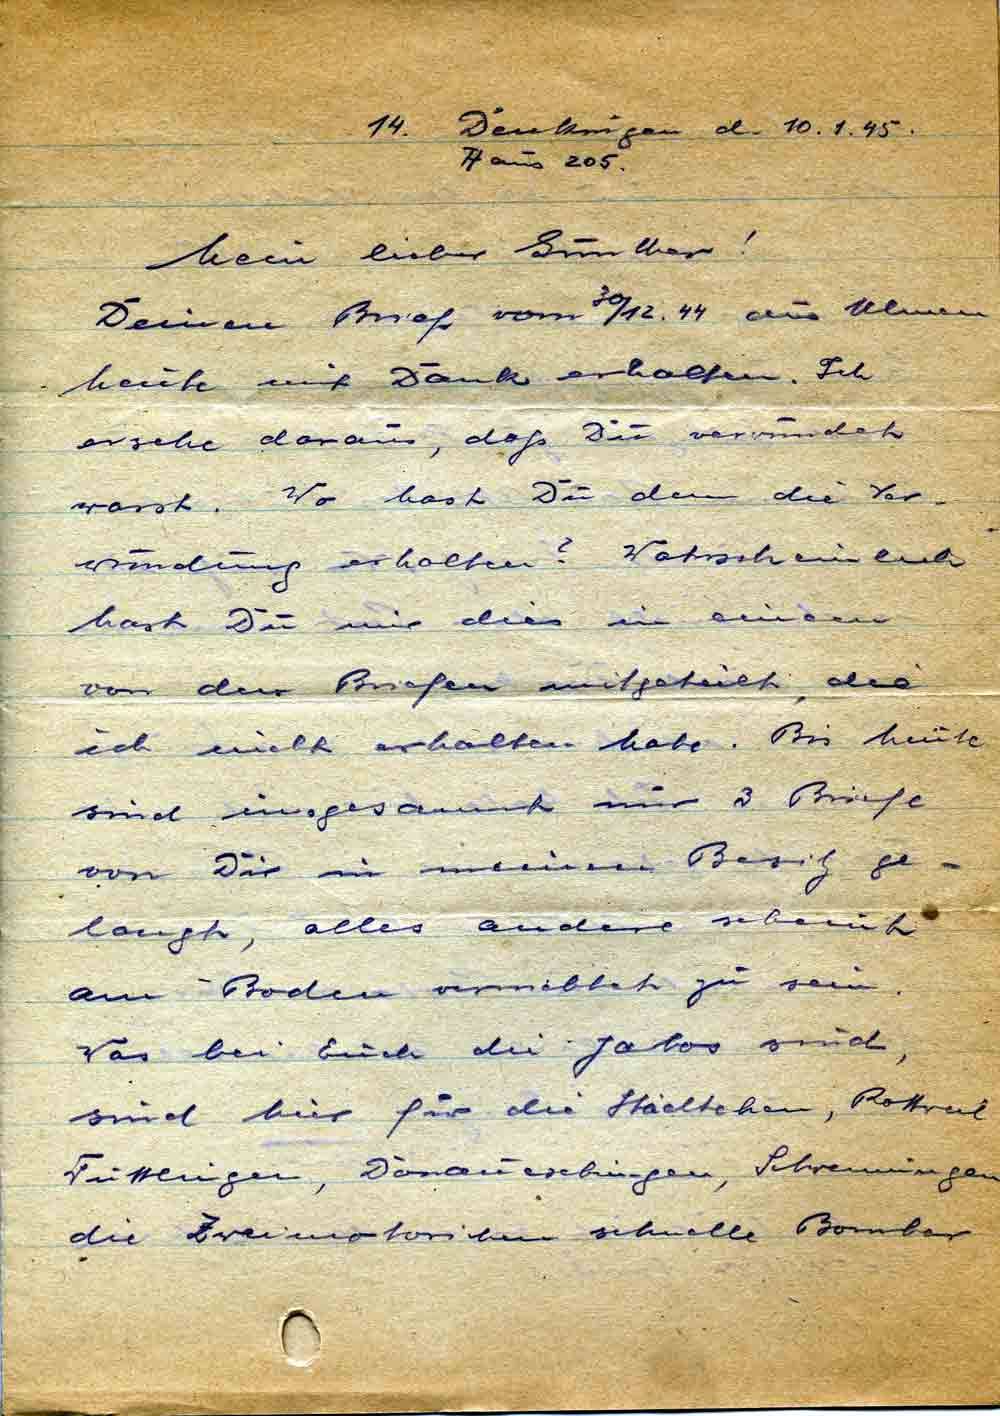 14. Denkingen d. 10.1.45.
Haus 205.
Mein lieber Günther!
Deinen Brief vom 30/12.44 aus Ulmen
heute mit Dank erhalten. Ich
ersehe daraus, daß Du verwundet
warst. Wo hast Du denn die Ver-
wundung erhalten? Wahrscheinlich
hast Du mir dies in einem
von den Briefen mitgeteilt, die
ich nicht erhalten habe. Bis heute
sind insgesamt nur 3 Briefe
von Dir in meinen Besitz ge-
langt, alles andere scheint
am Boden vernichtet zu sein.
Was bei Euch die Jabos sind,
sind hier für die Städtchen, Rottweil
Tuttlingen, Donaueschingen, Schwenningen
die Zweimotorichen schnelle Bomber